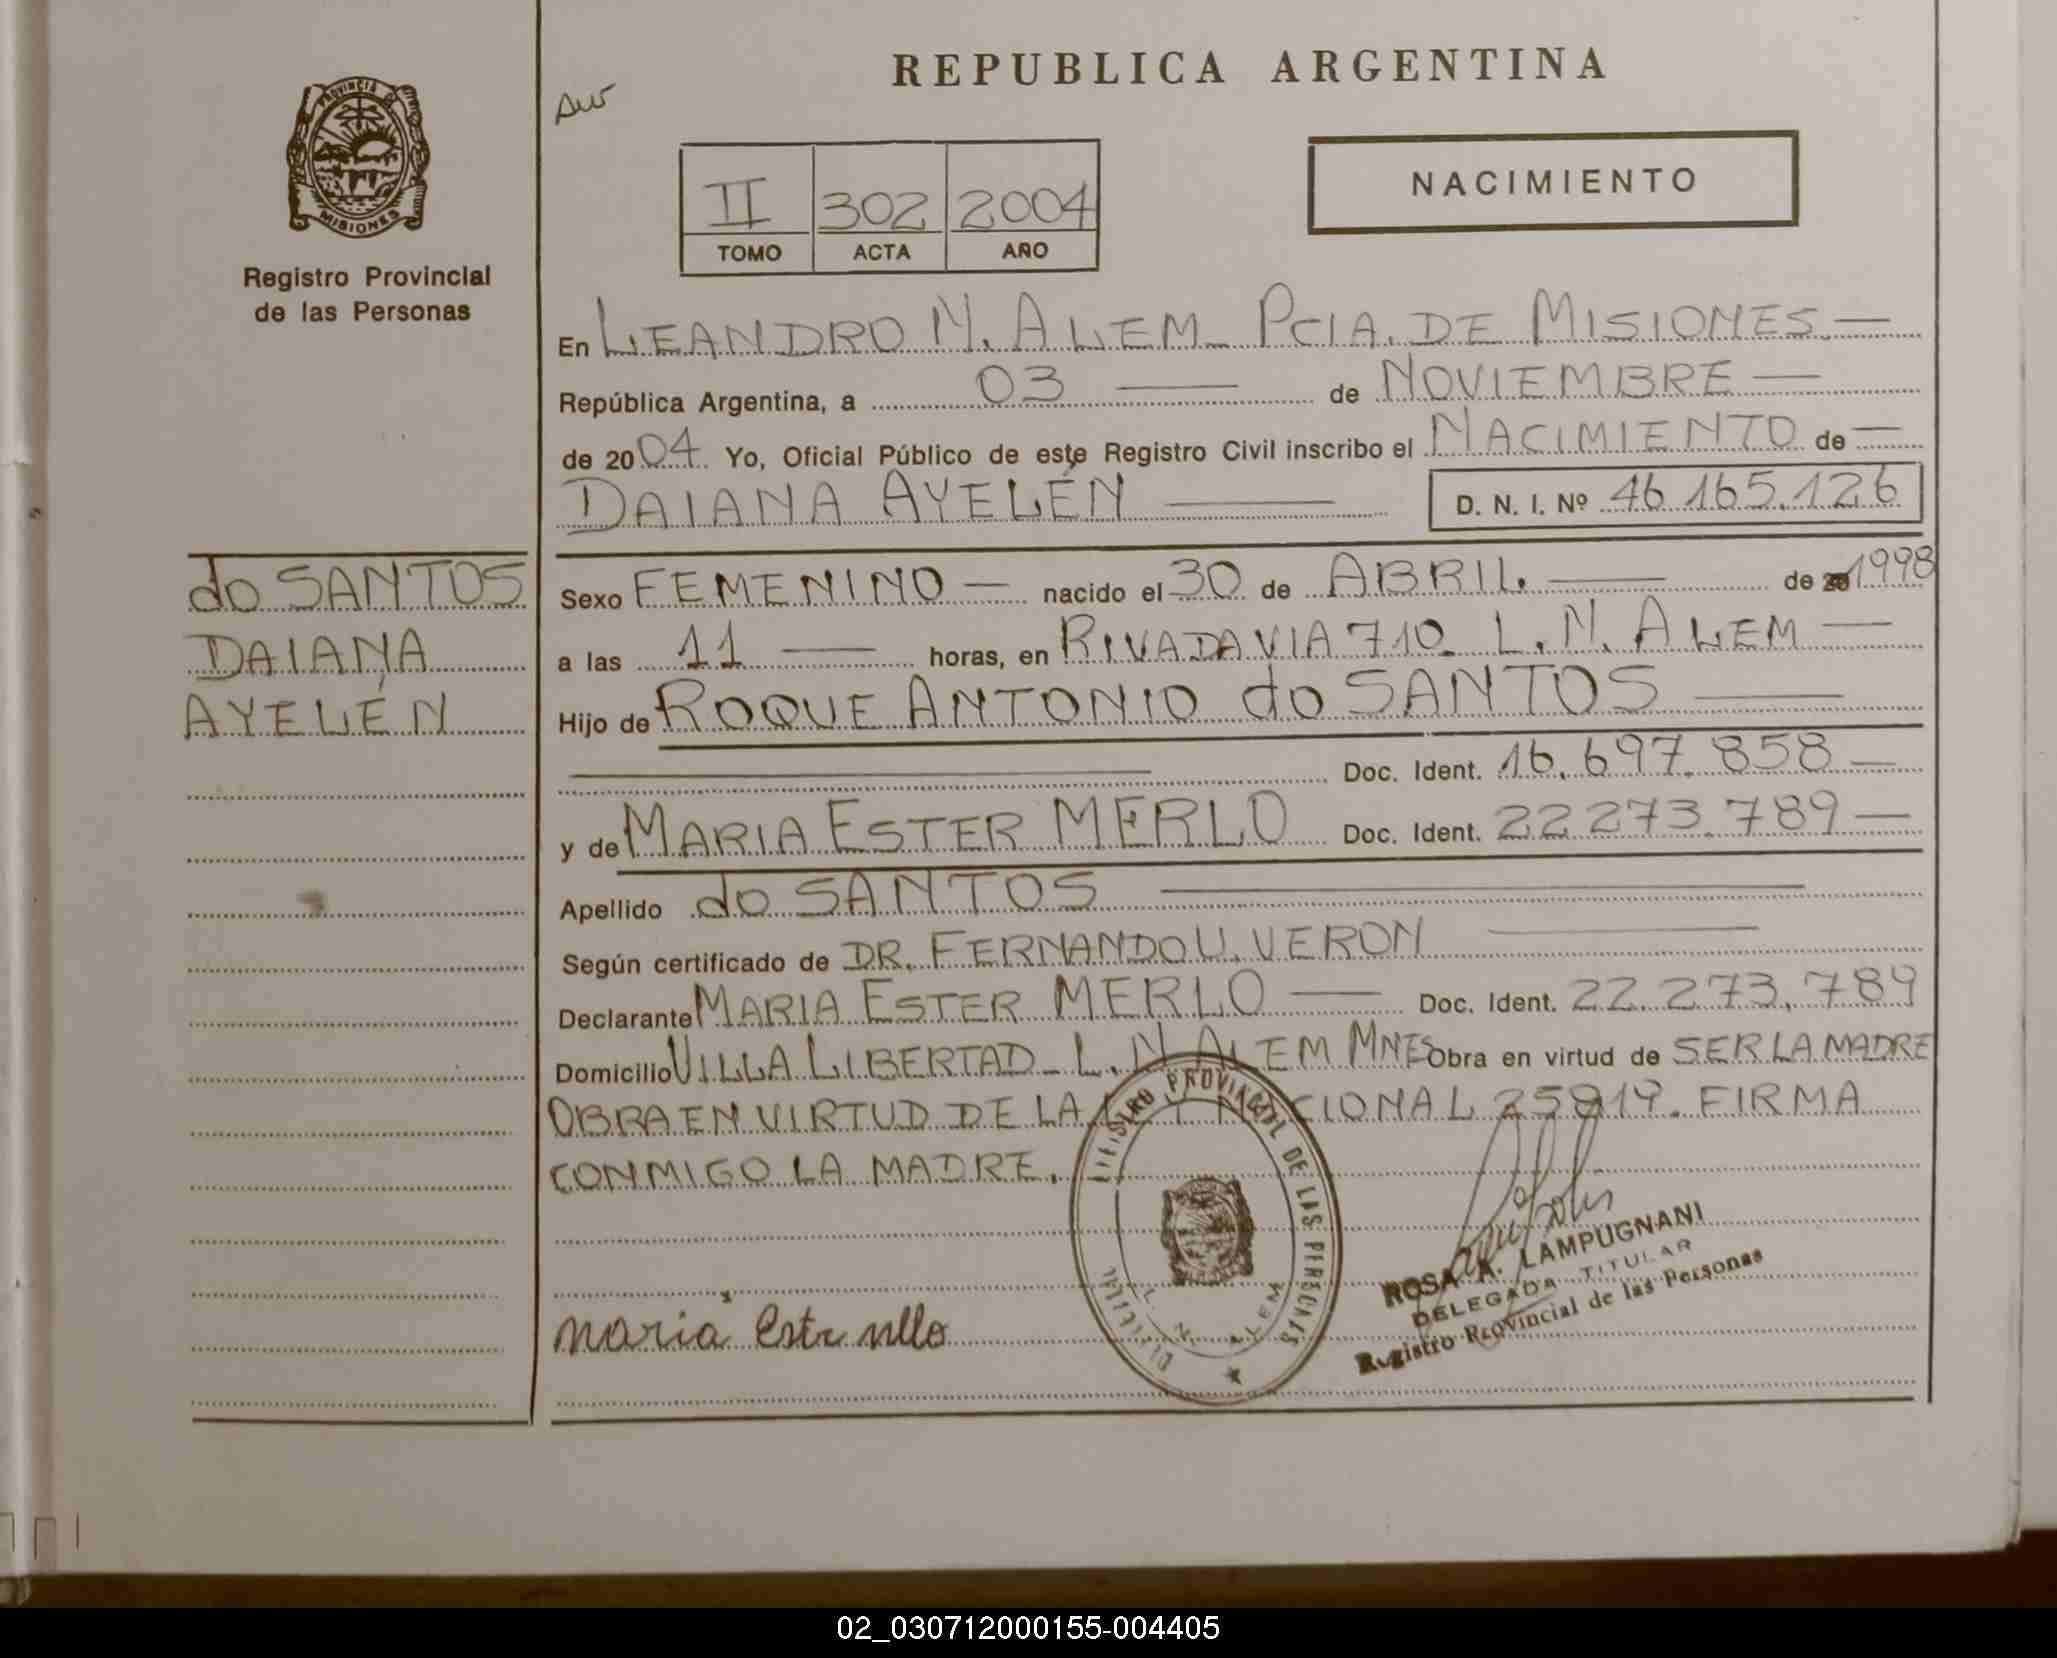 REPUBLICA ARGENTINA
PROVINCIA DE
MISIONES
Registro Provincial
de las Personas
II 302 2004
TOMO ACTA AÑO
NACIMIENTO
En LEANDRO N. ALEM_ PCIA. DE MISIONES.—
República Argentina, a 03 — de NOVIEMBRE —
de 2004. Yo, Oficial Público de este Registro Civil inscribo el NACIMIENTO de —
DAIANA AYELÉN — D. N. I. Nº 46.165.126
do SANTOS
DAIANA
AYELÉN
Sexo FEMENINO — nacido el 30 de ABRIL. — de 1998
a las 11 — horas, en RIVADAVIA 710. L. N. ALEM —
Hijo de ROQUE ANTONIO do SANTOS —
Doc. Ident. 16.697.858 —
y de MARIA ESTER MERLO Doc. Ident. 22.273.789 —
Apellido do SANTOS —
Según certificado de DR. FERNANDO U. VERON —
Declarante MARIA ESTER MERLO — Doc. Ident. 22.273.789
Domicilio VILLA LIBERTAD_ L. N. ALEM MNES Obra en virtud de SER LA MADRE
OBRA EN VIRTUD DE LA NACIONAL 25819. FIRMA
CONMIGO LA MADRE.
REGISTRO PROVINCIAL DE LAS PERSONAS
L. N. ALEM
ROSA A. LAMPUGNANI
DELEGADA TITULAR
Registro Provincial de las Personas
maria Este
02_030712000155-004405